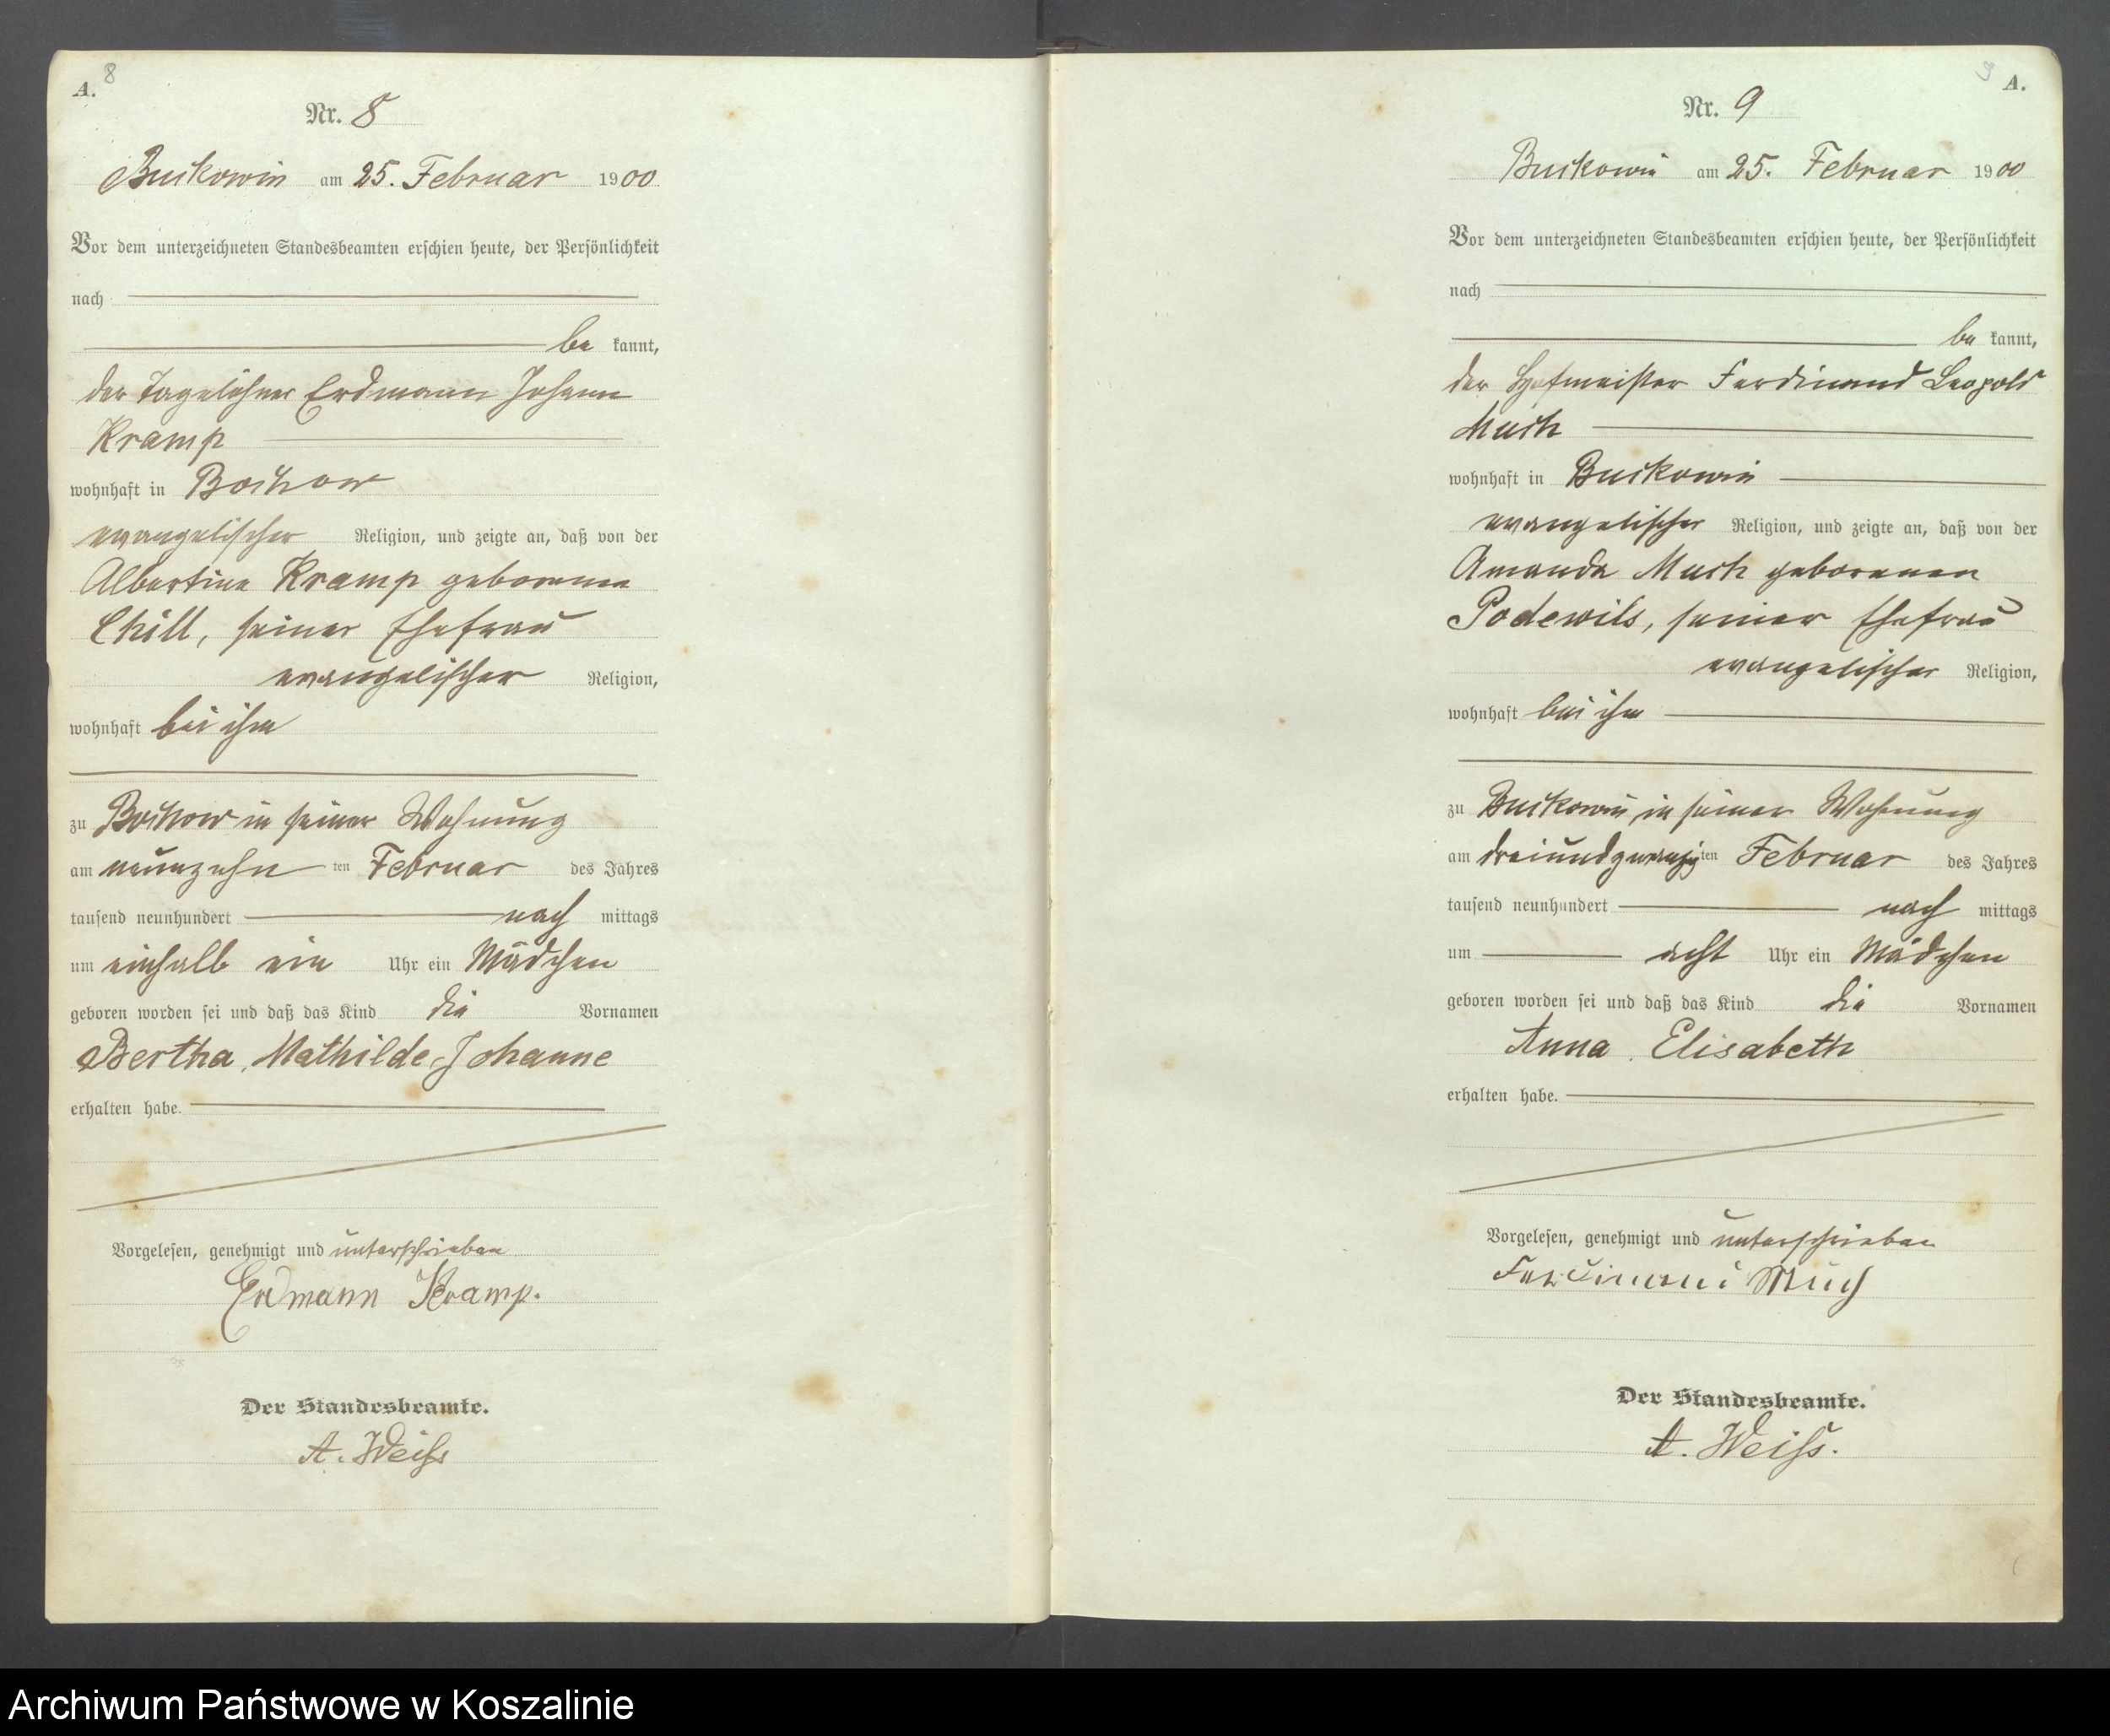 A.
8
Nr. 8
Buckowin am 25. Februar 1900
Vor dem unterzeichneten Standesbeamten erschien heute, der Persönlichkeit
nach
be kannt,
der Tagelöhner Erdmann Johann
Kramp
wohnhaft in Bochow
evangelischer Religion, und zeigte an, daß von der
Albertine Kramp geborenen
Chill, seiner Ehefrau
evangelischer Religion,
wohnhaft bei ihm
zu Bochow in seiner Wohnung
am neunzehn ten Februar des Jahres
tausend neunhundert nach mittags
um einhalb ein Uhr ein Mädchen
geboren worden sei und daß das Kind die Vornamen
Bertha, Mathilde, Johanne
erhalten habe.
Vorgelesen, genehmigt und unterschrieben
Erdmann Kramp.
Der Standesbeamte.
A. Weiß
9
A.
Nr. 9
Buckowin am 25. Februar 1900
Vor dem unterzeichneten Standesbeamten erschien heute, der Persönlichkeit
nach
be kannt,
der Hofmeister Ferdinand Leopold
Much
wohnhaft in Buckowin
evangelischer Religion, und zeigte an, daß von der
Amanda Much geborenen
Podewils, seiner Ehefrau
evangelischer Religion,
wohnhaft bei ihm
zu Buckowin in seiner Wohnung
am dreiundzwanzigten Februar des Jahres
tausend neunhundert nach mittags
um acht Uhr ein Mädchen
geboren worden sei und daß das Kind die Vornamen
Anna, Elisabeth
erhalten habe.
Vorgelesen, genehmigt und unterschrieben
Ferdinand Much
Der Standesbeamte.
A. Weiß.
Archiwum Państwowe w Koszalinie